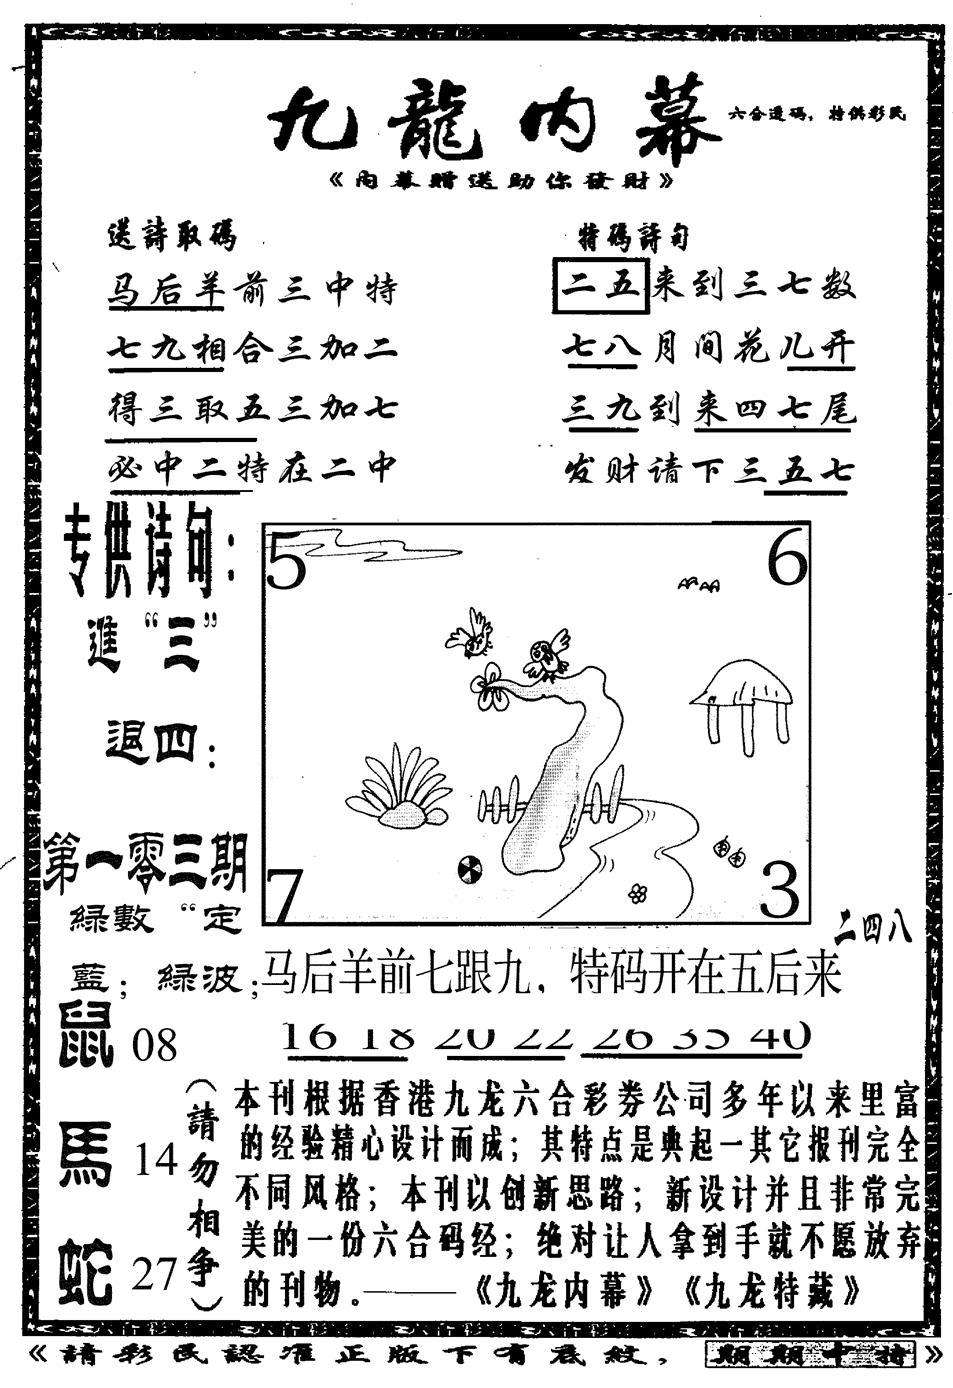 九龍内幕
六合透码，特供彩民
《内幕赠送助你發財》
送詩取碼
马后羊前三中特
七九相合三加二
得三取五三加七
必中二特在二中
特碼詩句
二五来到三七数
七八月间花儿开
三九到来四七尾
发财请下三五七
专供诗句：
進“三”
退四：
第一零三期
綠數“定
藍；綠波；
鼠 08
馬 14
蛇 27
5
6
7
3
二四八
马后羊前七跟九，特码开在五后来
16 18 20 22 26 35 40
（請勿相争）
本刊根据香港九龙六合彩券公司多年以来里富
的经验精心设计而成；其特点是典起一其它报刊完全
不同风格；本刊以创新思路；新设计并且非常完
美的一份六合码经；绝对让人拿到手就不愿放弃
的刊物。——《九龙内幕》《九龙特藏》
《請彩民認准正版下有底紋，期期中特》